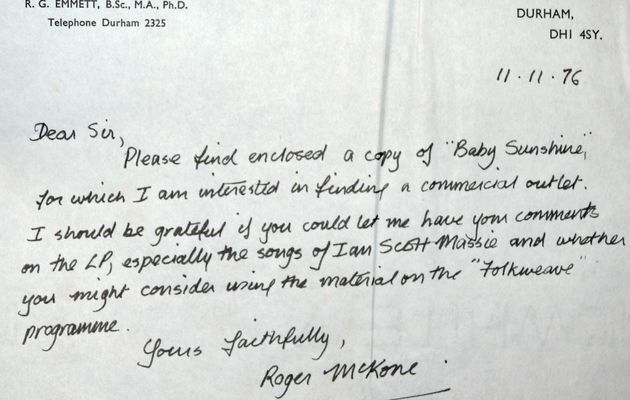 R. G. EMMETT, B.Sc., M.A., Ph.D.
Telephone Durham 2325
DURHAM,
DH1 4SY.
11.11.76
Dear Sir,
Please find enclosed a copy of "Baby Sunshine,"
for which I am interested in finding a commercial outlet.
I should be grateful if you could let me have your comments
on the LP, especially the songs of Ian Scott Massie and whether
you might consider using the material on the "Folkweave"
programme.
Yours faithfully,
Roger McKone.